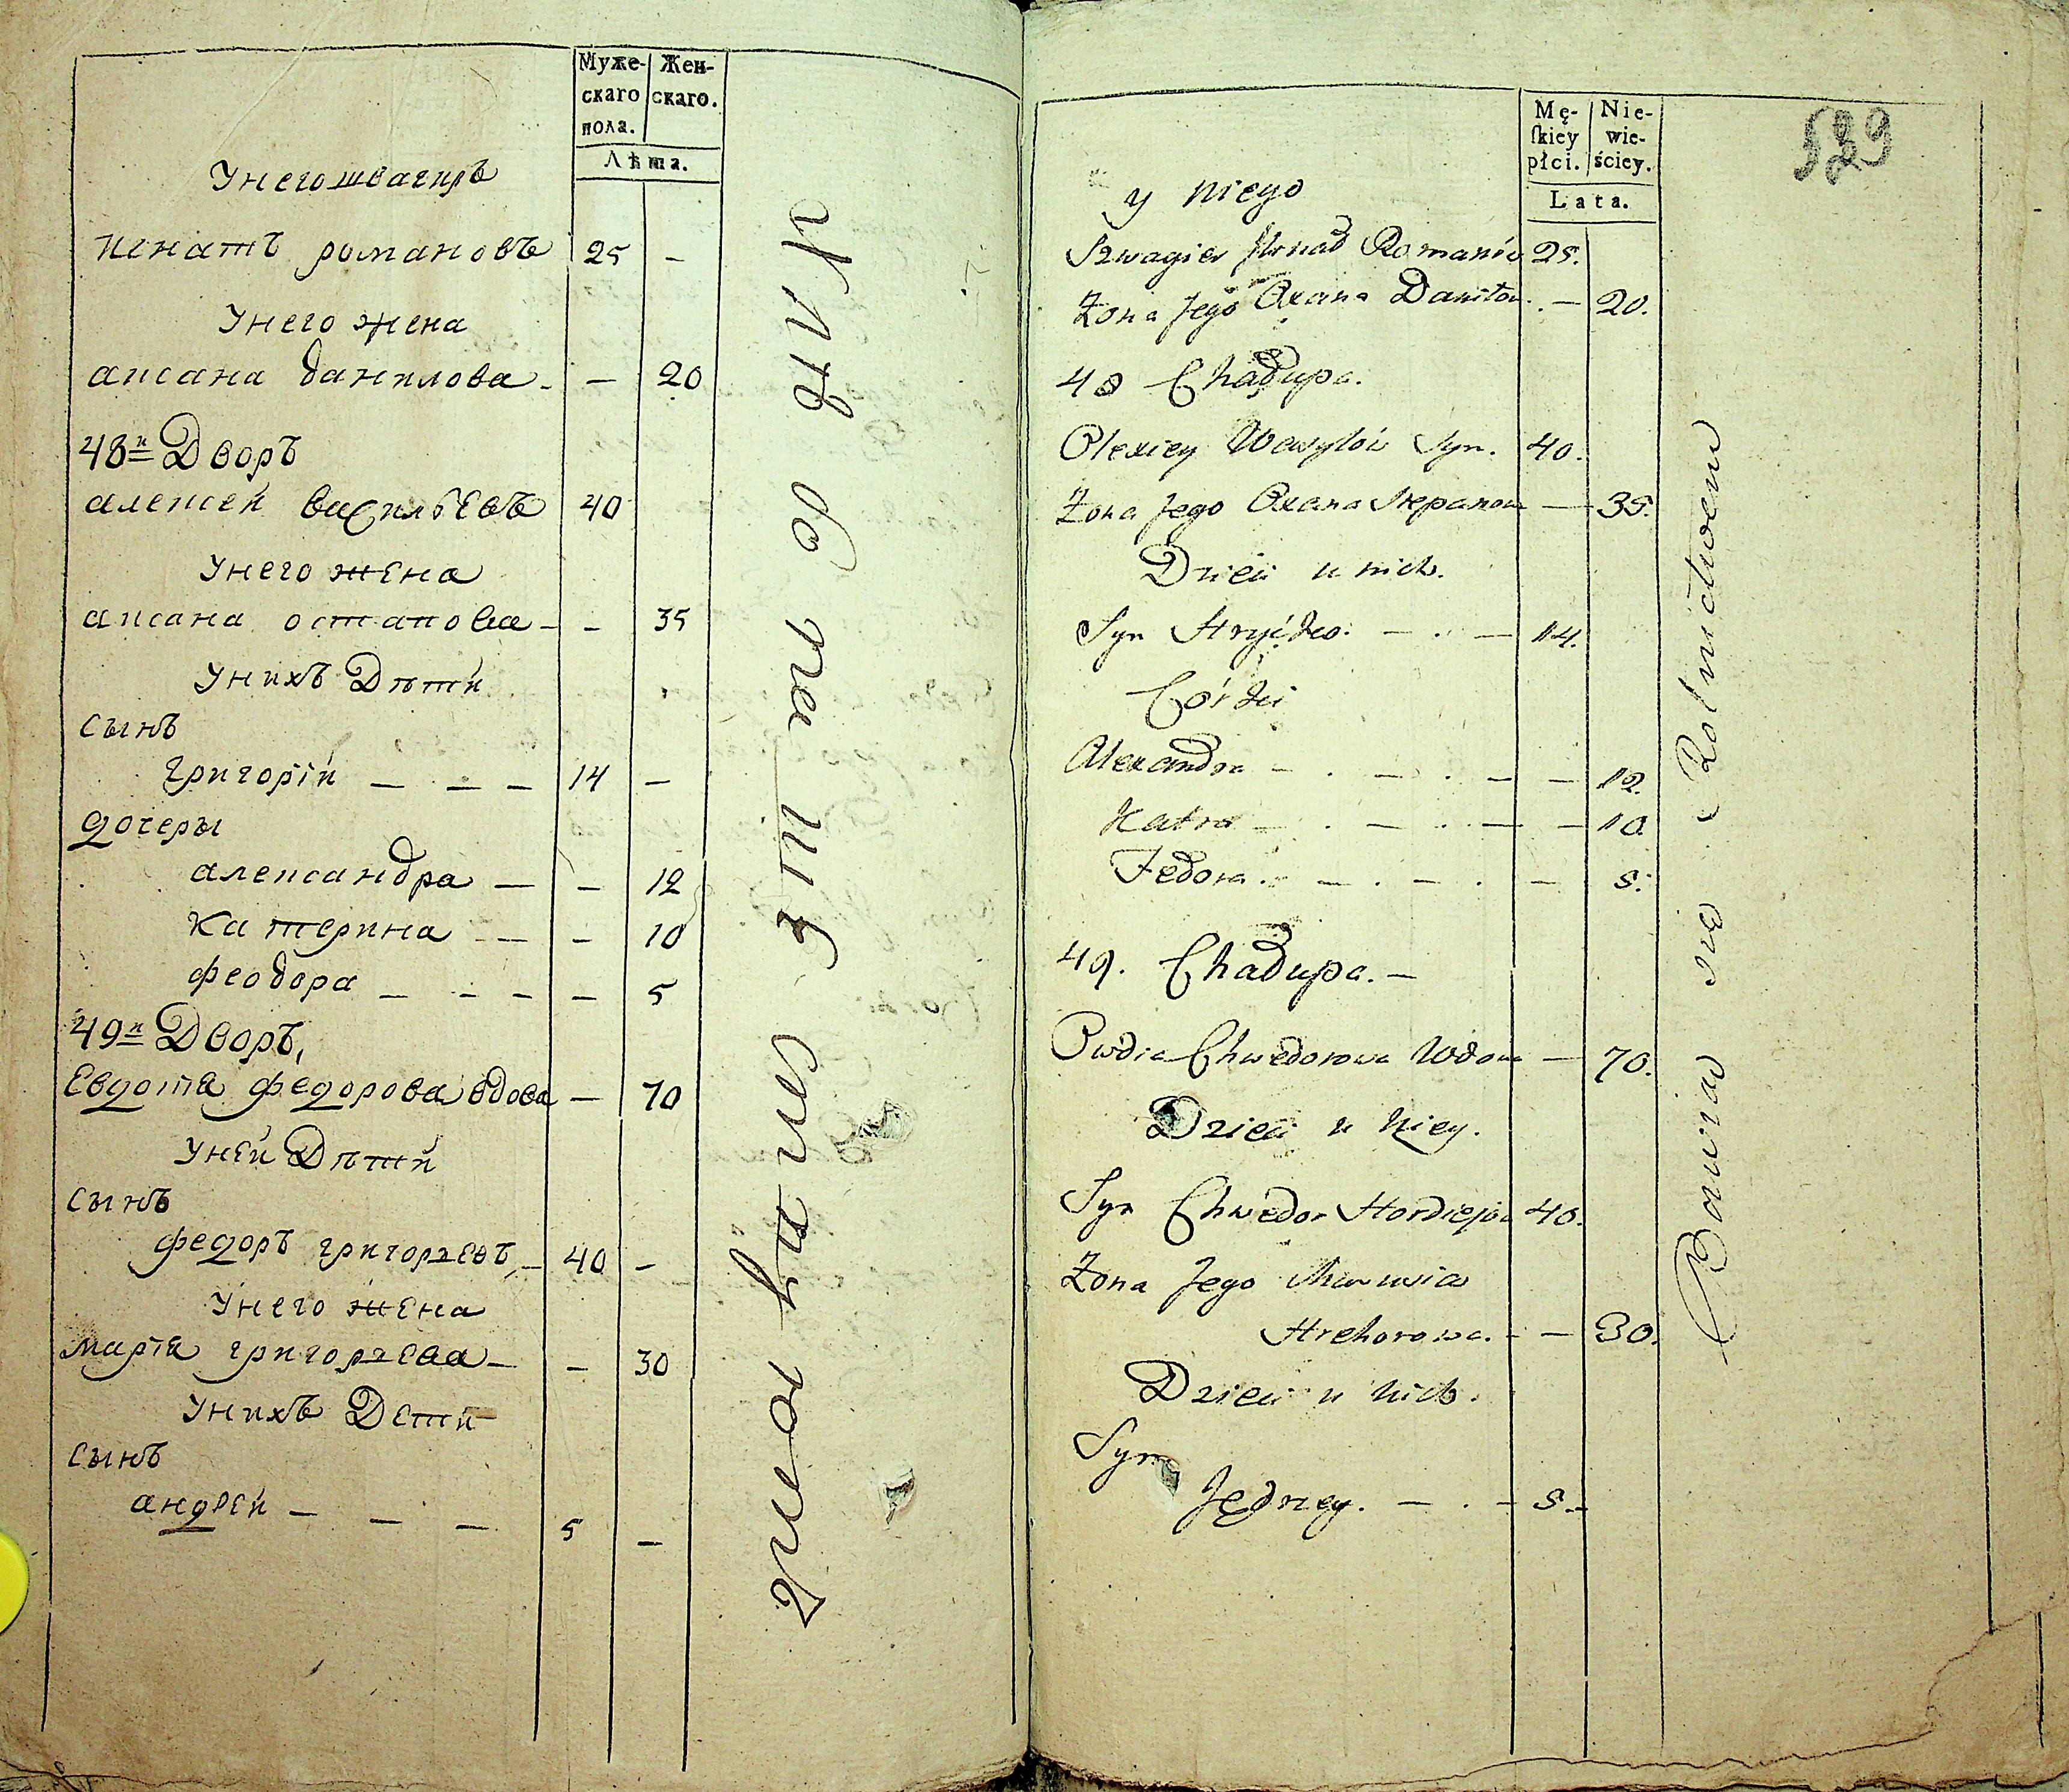 Муже-
скаго
пола.
Жен-
скаго.
Лѣта.
У него швагиръ
игнатъ романовъ 25 –
У него жена
аксана данилова – – 20
48й Дворъ
алексей васильевъ 40
У него жена
аксана остапова – – 35
У нихъ Дѣти
сынъ
григорій – – – 14 –
дочеры
александра – – 12
катерина – – – 10
феодора – – – – 5
49й Дворъ,
Евдотя федорова вдова – 70
У ней Дѣти
сынъ
федоръ григорьевъ – 40 –
У него жена
марія григорьева – – 30
У нихъ Дети
сынъ
андрей – – – 5 –
Mę-
skiey
płci.
Nie-
wie-
ściey.
Lata.
529
y niego
Szwagier Romanów 25.
Żona Jego Oxana Daniłow. – 20.
48 Chałupa.
Olexiey Wasylów Syn. 40.
Żona Jego Oxana Stepanow – 35.
Dzieci u nich.
Syn Hryćko. – . – 14.
Córki
Alexandra – . – . – – 12.
Katra – . – . – – 10.
Fedora. – . – . – – 5.
49. Chałupa. –
Owdia Chwedorowa Wdowa – 70.
Dzieci u Niey.
Syn Chwedor Hordiejów 40.
Żona Jego Marwia
Hrehorowa. – – 30.
Dzieci u nich.
Syn
Jędrzey. – . – 5. –
Bawia się Rolnictwem